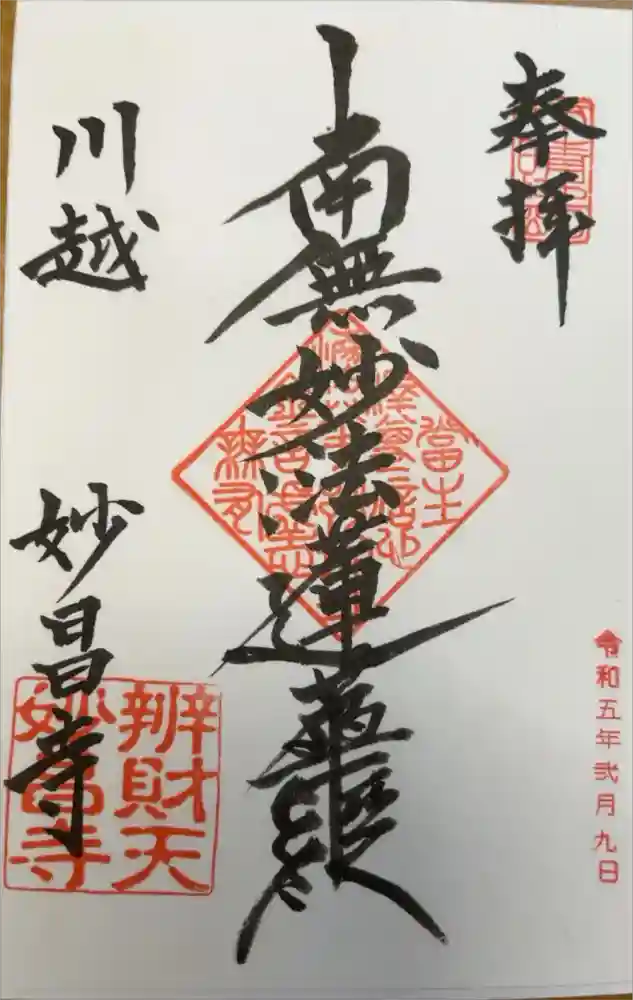 奉拝
南無妙法蓮華経
令和五年弐月九日
川越
妙昌寺
辨財天
妙昌寺